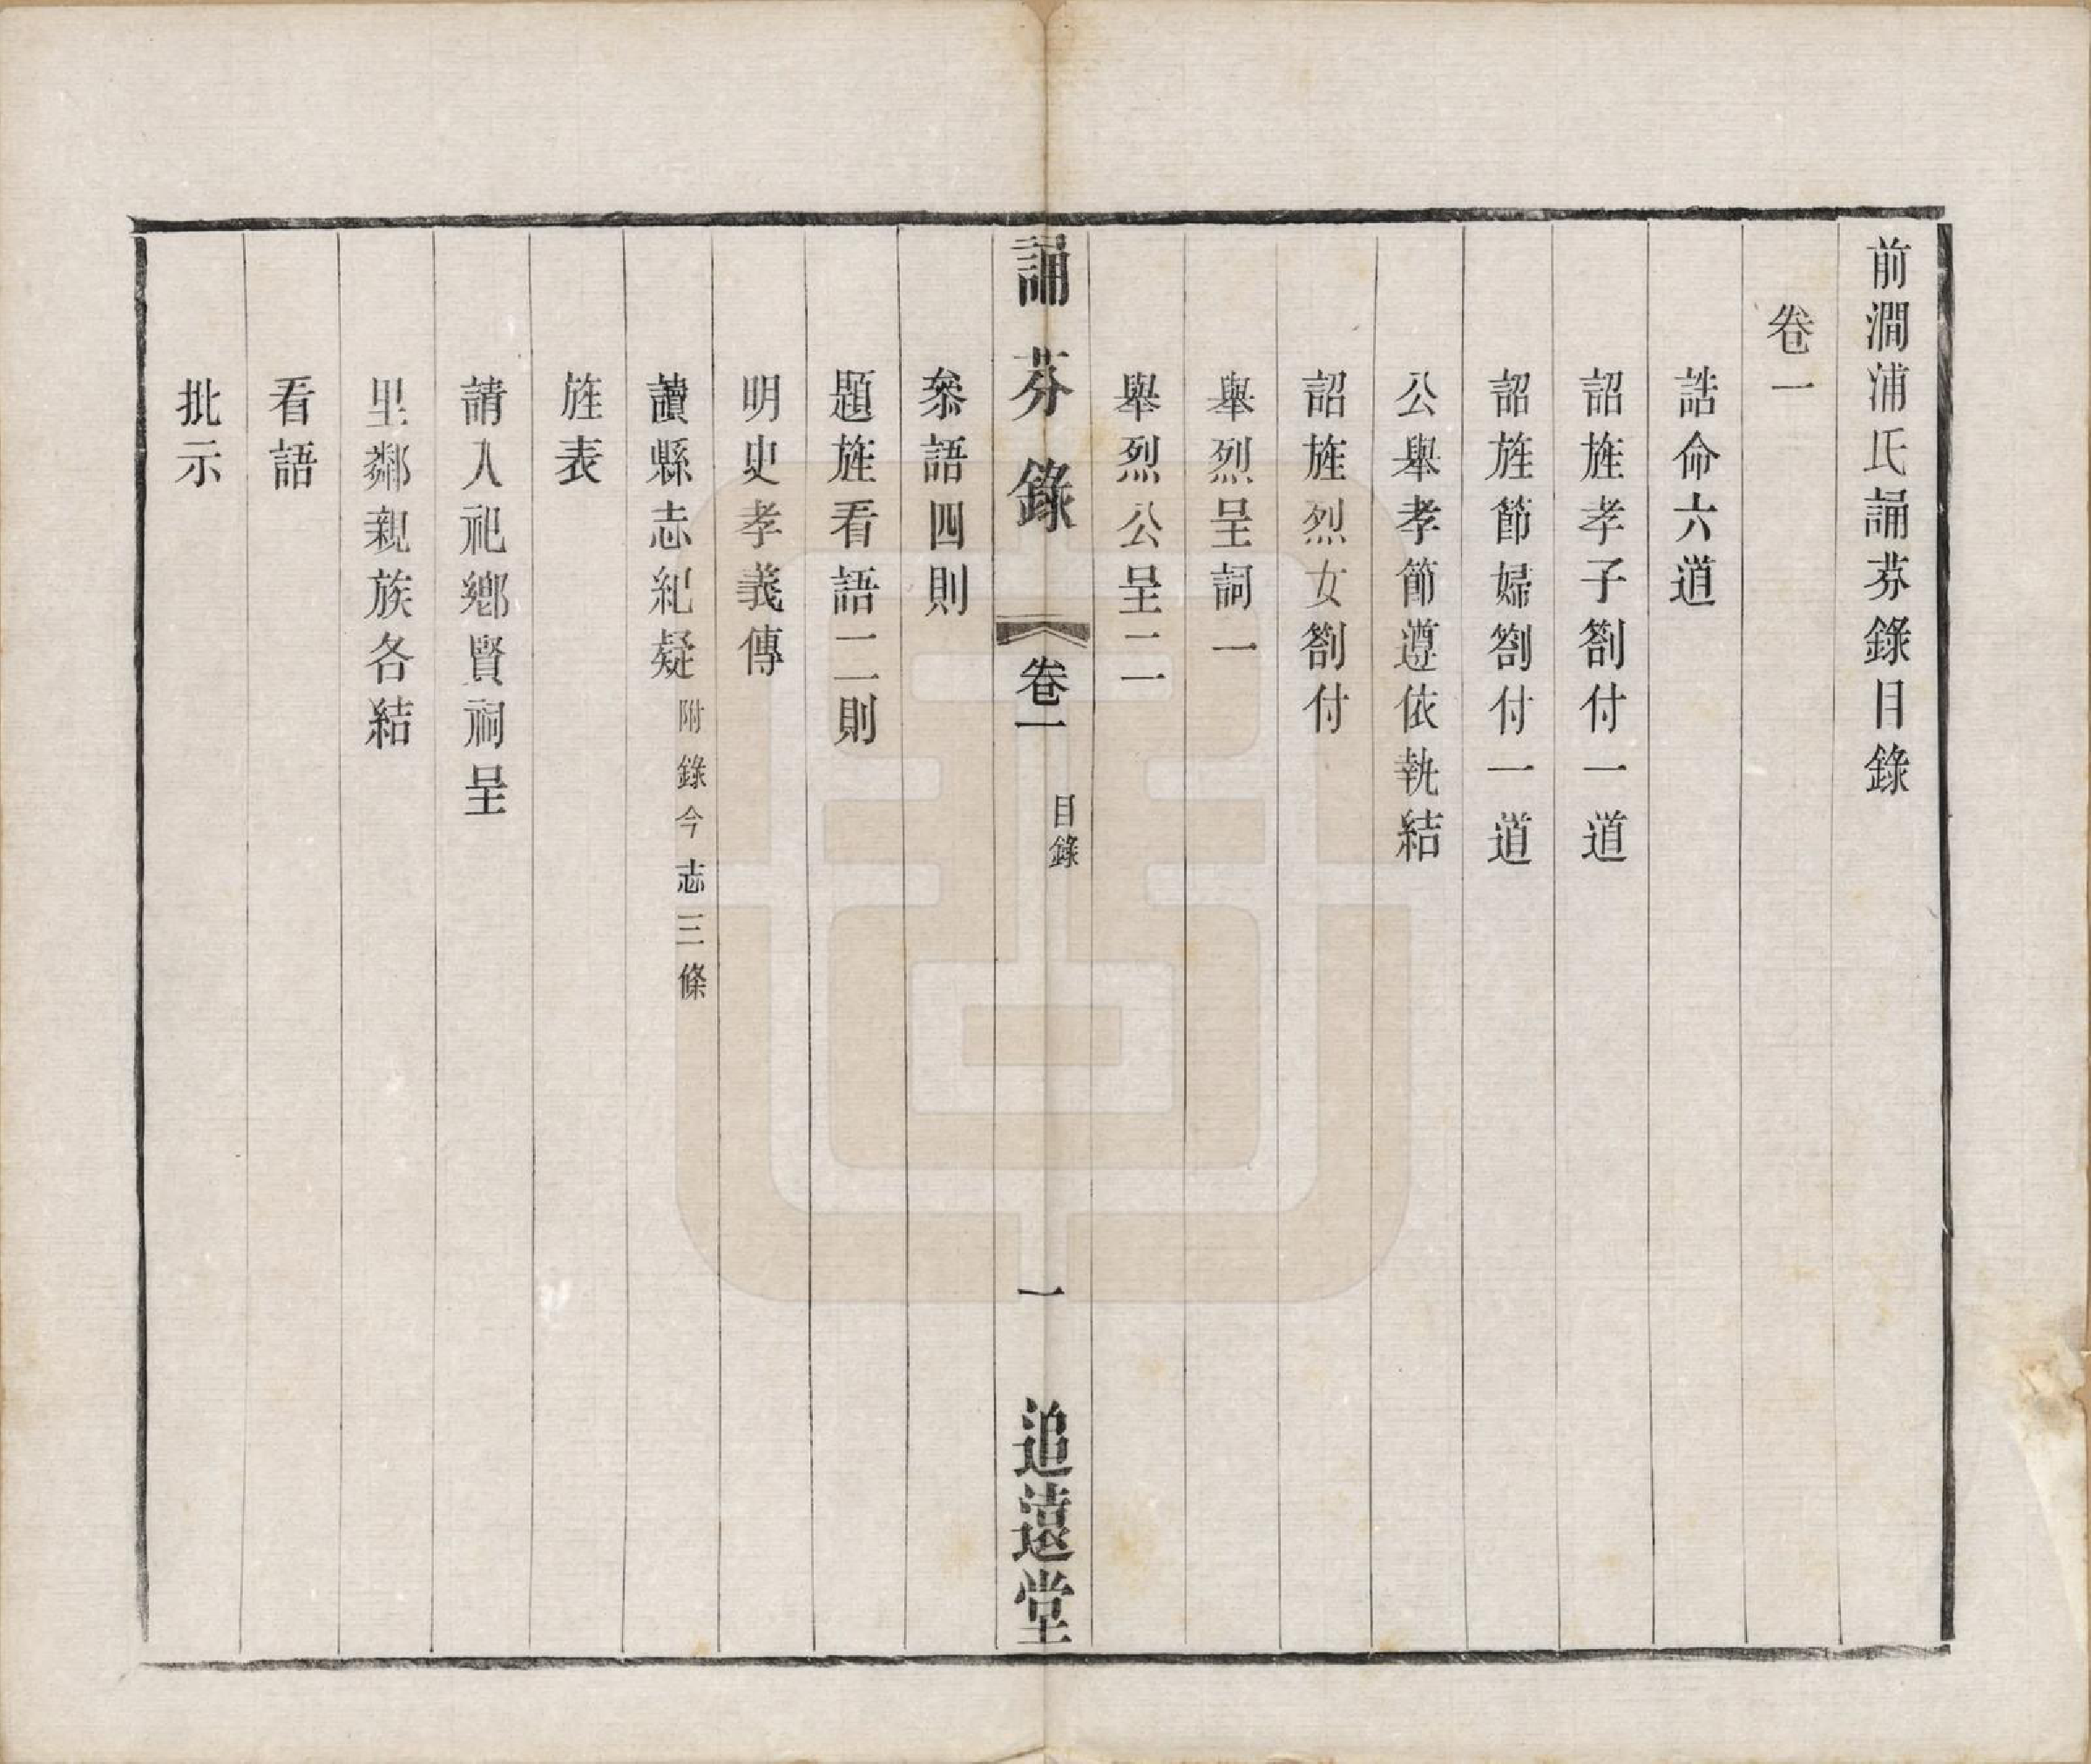 前澗浦氏誦芬錄目錄
卷一
誥命六道
詔旌孝子劄付一道
詔旌節婦劄付一道
公舉孝節遵依執結
詔旌烈女劄付
舉烈呈詞一
舉烈公呈二
誦芬錄 卷一 目錄 一 追遠堂
叅語四則
題旌看語二則
明史孝義傳
讀縣志紀疑附錄今志三條
旌表
請入祀鄉賢祠呈
里鄰親族各結
看語
批示